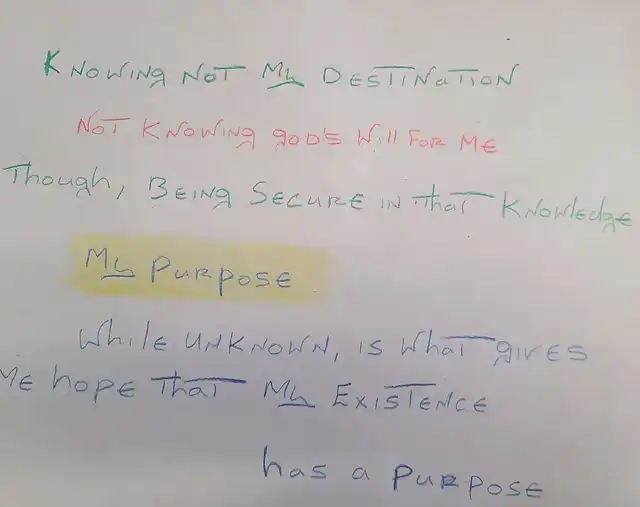 KNOWING NOT My DESTINaTION
NOT KNOWING goD's WIll FOR ME
Though, BEING SECURE IN that KNOWledgE
My PURPOSE
WhilE UNKNOWN, IS What gIVES
ME hOPE That My EXISTENCE
has a PURPOSE